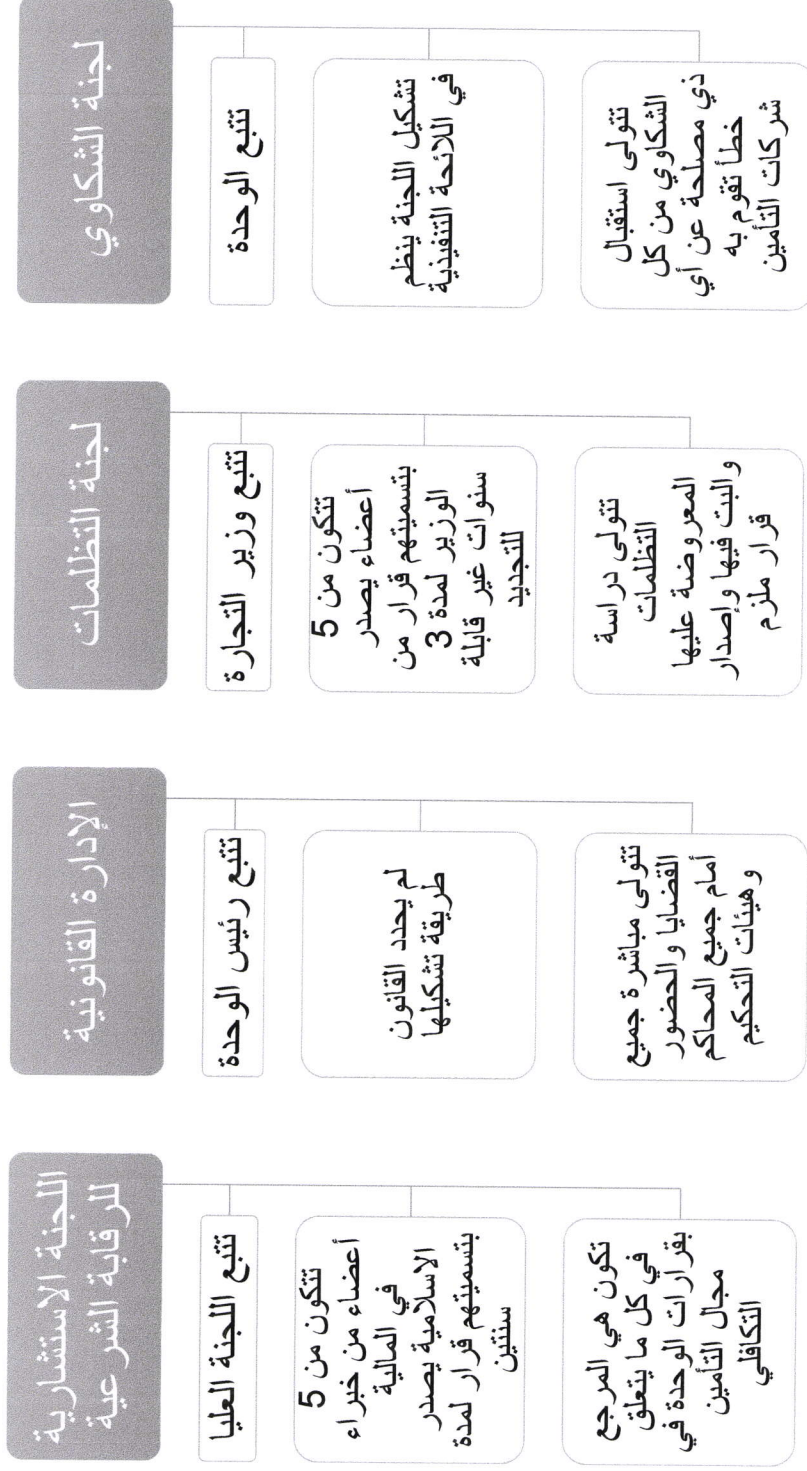 لجنة الشكاوي
تتبع الوحدة
تشكيل اللجنة ينظم
في اللائحة التنفيذية
تتولى استقبال
الشكاوي من كل
ذي مصلحة عن أي
خطأ تقوم به
شركات التأمين
لجنة التظلمات
تتبع وزير التجارة
تتكون من 5
أعضاء يصدر
بتسميتهم قرار من
الوزير لمدة 3
سنوات غير قابلة
للتجديد
تتولى دراسة
التظلمات
المعروضة عليها
والبت فيها وإصدار
قرار ملزم
الإدارة القانونية
تتبع رئيس الوحدة
لم يحدد القانون
طريقة تشكيلها
تتولى مباشرة جميع
القضايا والحضور
أمام جميع المحاكم
وهيئات التحكيم
اللجنة الاستشارية
للرقابة الشرعية
تتبع اللجنة العليا
تتكون من 5
أعضاء من خبراء
في المالية
الاسلامية يصدر
بتسميتهم قرار لمدة
سنتين
تكون هي المرجع
في كل ما يتعلق
بقرارات الوحدة في
مجال التأمين
التكافلي